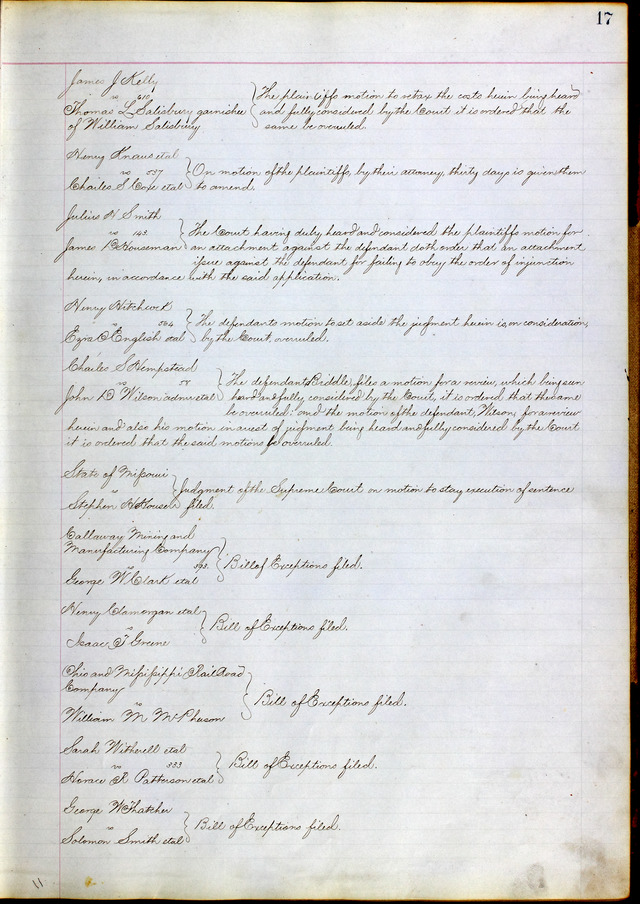 17
James J Kelly
vs 610
The plaintiffs motion to retax the costs herein being heard
Thomas L Salisbury garnishee
and fully considered by the Court it is ordered that the
of William Salisbury
same be overruled.
Henry Knaus etal
vs 537
On motion of the plaintiffs, by their attorney, thirty days is given them
Charles S Coxe etal
to amend.
Julius H. Smith
vs 143
The Court having duly heard and considered the plaintiffs motion for
James B Houseman
an attachment against the defendant doth order that an attachment
issue against the defendant for failing to obey the order of injunction
herein, in accordance with the said application.
Henry Hitchcock
vs 504
The defendants motion to set aside the judgment herein is, on consideration,
Ezra O English etal
by the Court, overruled.
Charles S Hempstead
vs 58
The defendant Biddle, files a motion for a review, which being seen
John D Wilson admr etal
heard and fully considered by the Court, it is ordered that the same
be overruled: and the motion of the defendant, Wilson, for a review
herein and also his motion in arrest of judgment being heard and fully considered by the Court
it is ordered that the said motions be overruled.
State of Missouri
vs
Judgment of the Supreme Court on motion to stay execution of sentence
Stephen H House
filed.
Callaway Mining and
Manufacturing Company
vs 593
Bill of Exceptions filed.
George W. Clark etal
Henry Clamorgan etal
vs
Bill of Exceptions filed.
Isaac T Greene
Ohio and Mississippi Rail Road
Company
vs
Bill of Exceptions filed.
William M McPherson
Sarah Witherell etal
vs 333
Bill of Exceptions filed.
Horace R Patterson etal
George W Thatcher
vs
Bill of Exceptions filed.
Solomon Smith etal
11